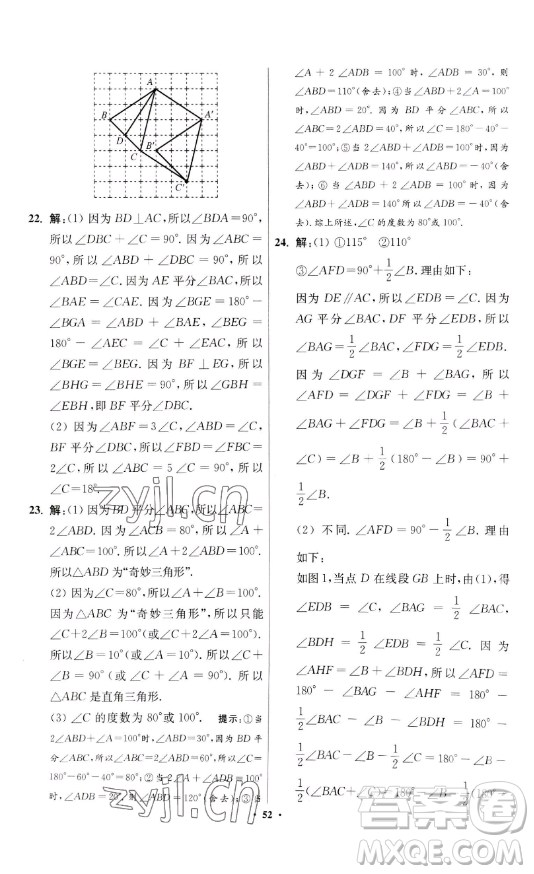 A
B
A'
D
C
B'
C'
22. 解:(1) 因为 BD⊥AC,所以∠BDA=90°,
所以∠DBC+∠C=90°. 因为∠ABC=
90°,所以∠ABD+∠DBC=90°,所以
∠ABD=∠C. 因为 AE 平分∠BAC,所以
∠BAE=∠CAE. 因为∠BGE=180°-
∠BGA=∠ABD+∠BAE,∠BEG=
180°-∠AEC=∠C+∠EAC,所以
∠BGE=∠BEG. 因为 BF⊥EG,所以
∠BHG=∠BHE=90°,所以∠GBH=
∠EBH,即 BF 平分∠DBC.
(2) 因为∠ABF=3∠C,∠ABD=∠C,
BF 平分∠DBC,所以∠FBD=∠FBC=
2∠C,所以∠ABC=5∠C=90°,所以
∠C=18°
23. 解:(1) 因为 BD 平分∠ABC,所以∠ABC=
2∠ABD. 因为∠ACB=80°,所以∠A+
∠ABC=100°,所以∠A+2∠ABD=100°.
所以△ABD 为“奇妙三角形”.
(2) 因为∠C=80°,所以∠A+∠B=100°.
因为△ABC 为“奇妙三角形”,所以只能
∠C+2∠B=100°(或∠C+2∠A=100°).
所以∠B=10°(或∠A=10°),所以∠C+
∠B=90°(或∠C+∠A=90°). 所以
△ABC 是直角三角形.
(3) ∠C 的度数为 80°或 100°. 提示:①当
2∠ABD+∠A=100°时,∠ABD=30°,因为 BD 平分
∠ABC,所以∠ABC=2∠ABD=60°,所以∠C=
180°-60°-40°=80°;②当 2∠A+∠ABD=100°
时,∠ADB=20°,则∠ABD=120°(舍去);③当
∠A+2∠ADB=100°时,∠ADB=30°,则
∠ABD=110°(舍去);④当∠ADB+2∠ABD=100°
时,∠ABD=20°. 因为 BD 平分∠ABC,所以
∠ABC=40°,所以∠C=180°-40°-
40°=100°;⑤当∠ABD+2∠ADB=100°时,
所以∠ADB+∠ABD=140°,所以∠ADB=-40°(舍
去);⑥当∠ADB+2∠A=100°时,因为
∠ADB+∠ABD=140°,所以∠ABD=120°(舍
去). 综上所述,∠C 的度数为 80°或 100°.
24. 解:(1) ①115° ②110°
③∠AFD=90°+1/2∠B. 理由如下:
因为 DE∥AC,所以∠EDB=∠C. 因为
AG 平分∠BAC,DF 平分∠EDB,所以
∠BAG=1/2∠BAC,∠FDG=1/2∠EDB.
因为∠DGF=∠B+∠BAG,所以
∠AFD=∠DGF+∠FDG=∠B+
∠BAG+∠FDG=∠B+1/2(∠BAC+
∠C)=∠B+1/2(180°-∠B)=90°+
1/2∠B.
(2) 不同. ∠AFD=90°-1/2∠B. 理由
如下:
如图 1,当点 D 在线段 GB 上时,由(1),得
∠EDB=∠C,∠BAG=1/2∠BAC,
∠BDH=1/2∠EDB=1/2∠C. 因为
∠AHF=∠B+∠BDH,所以∠AFD=
180°-∠BAG-∠AHF=180°-
1/2∠BAC-∠B-∠BDH=180°-
1/2∠BAC-∠B-1/2∠C=180°-∠B-
1/2(∠BAC+∠C)=180°-∠B-1/2(180°-
· 52 ·
zyjl.cn
zyjl.cn
答案圈
MXQE.COM